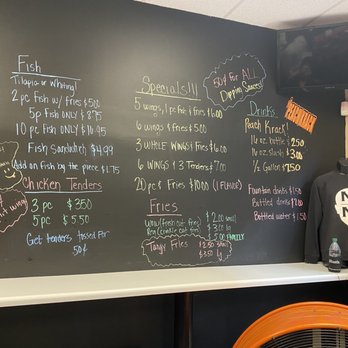 Fish
Tilapia or Whiting!
2 pc Fish w/ fries $5.00
5 pc Fish ONLY $8.75
10 pc Fish ONLY $16.95
Fish Sandwhich $4.99
Add on Fish by the piece $1.75
Chicken Tenders
3 pc $3.50
5 pc $5.50
Get tenders tossed For
50¢
Specials!!!
5 wings, 1 pc Fish & fries $6.00
6 wings & Fries $5.00
3 WHOLE WINGS & Fries $6.00
6 WINGS & 3 Tenders $7.00
20 pc & Fries $10.00 (1 FLAVOR)
Fries
$2.00 small
$3.00 lg
Tangy Fries $2.50 small
$3.50 lg
50¢ For ALL
Dipping Sauces!
Drinks
Peach Krack!
16 oz. bottle $2.50
16 oz. slush $3.00
1/2 Gallon $7.50
Fountain drinks $1.50
Bottled drinks $2.00
Bottled water $1.50